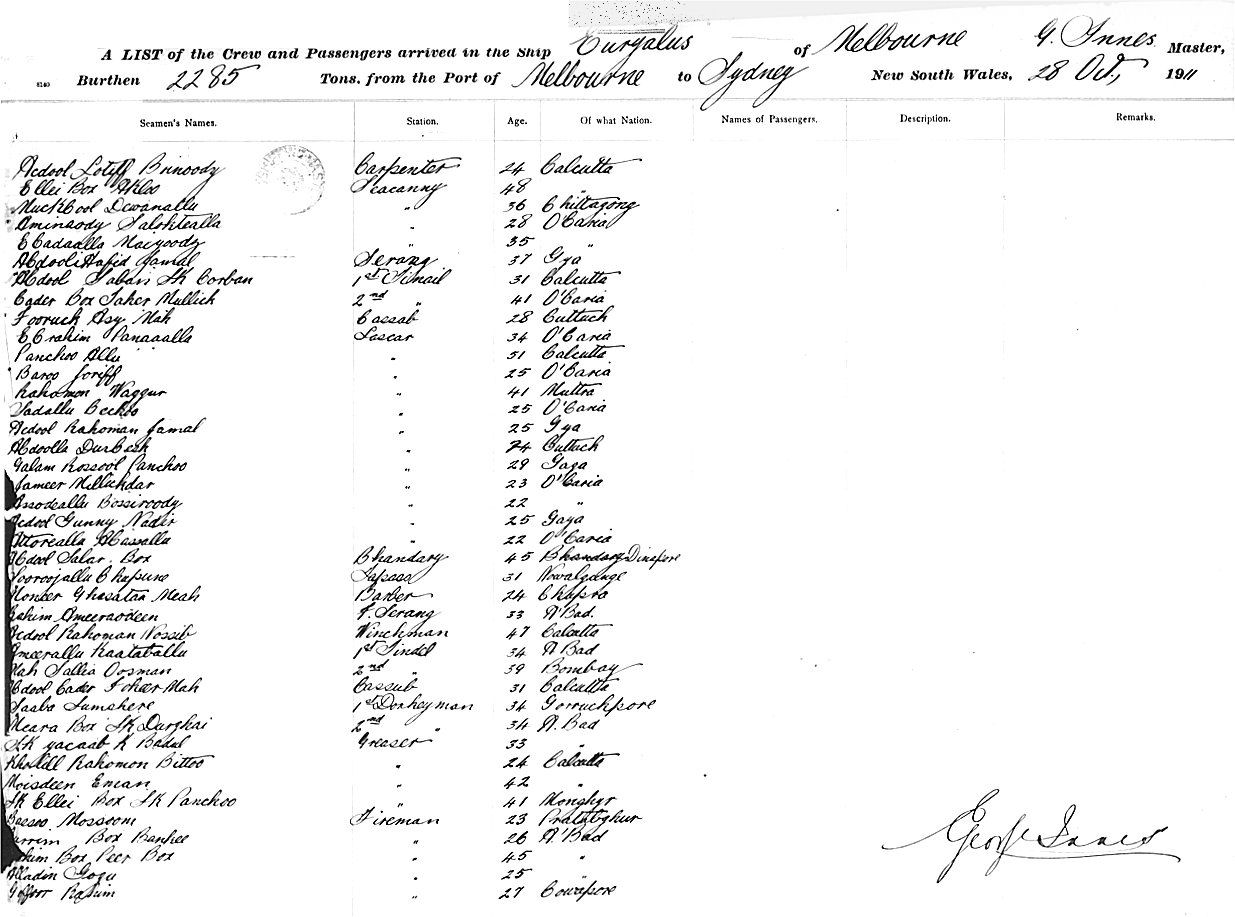 A LIST of the Crew and Passengers arrived in the Ship Euryalus of Melbourne G. Innes Master,
8140 Burthen 2285 Tons, from the Port of Melbourne to Sydney New South Wales, 28 Oct, 1911
Seamen's Names. Station. Age. Of what Nation. Names of Passengers. Description. Remarks.
Abdool Lotiff Brinoody Carpenter 24 Calcutta
Ellei Box Akloo Seacanny 48 "
Muckbool Dewanallu " 36 Chittagong
Aminoody Saloktealla " 28 O'Caria
Ebadaalla Maiyoody " 35 "
Abdool Hafid Jamal Serang 37 Gya
Abdool Saban Sk Corban 1st Tinail 31 Calcutta
Cader Box Saher Mullick 2nd " 41 O'Caria
Fooruck Asy Mah Cassab 28 Cuttuck
Ebrahim Panaaalla Lascar 34 O'Caria
Panchoo Allu " 51 Calcutta
Baroo Joriff " 25 O'Caria
Rahomon Waggur " 41 Muttra
Sadallu Beckoo " 25 O'Caria
Abdool Rahoman Jamal " 25 Gya
Abdoolla Durbesh " 24 Cuttuck
Galam Rossool Panchoo " 29 Gaya
Jameer Millickdar " 23 O'Caria
Assodeallu Bossiroody " 22 "
Abdool Gunny Nadir " 25 Gaya
Attorealla Abasallu " 22 O'Caria
Abdool Salar Box Bhandary 45 Bhandary Dinapore
Chapune 31 Nowalgunge
Moneer Ghasatan Meah Barber 24 Chapra
Rahim Ameeraodeen F. Serang 33 A'Bad.
Abdool Rahoman Nossib Winchman 47 Calcutta
Ameerallu Kaataballu 1st Tindel 34 A'Bad
Mah Sallia Oosman 2nd " 39 Bombay
Abdool Cader Foker Mah Cassub 31 Calcutta
Saaba Sumshere 1st Donkeyman 34 Gorruchpore
Meara Box Sk Durghai 2nd " 34 A.Bad
Sk Yacaab K Badul Greaser 33 "
Khalill Rahomon Bittoo " 24 Calcutta
Moisdeen Eman " 42 "
Sk Ellei Box Sk Panchoo " 41 Monghyr
Bassoo Mossoom Fireman 23 Pratabghur
Box Bankee " 26 A'Bad
Box Peer Box " 45 "
Alladin Gogu " 25 "
Goffoor Rahim " 27 Cownpore
George Innes